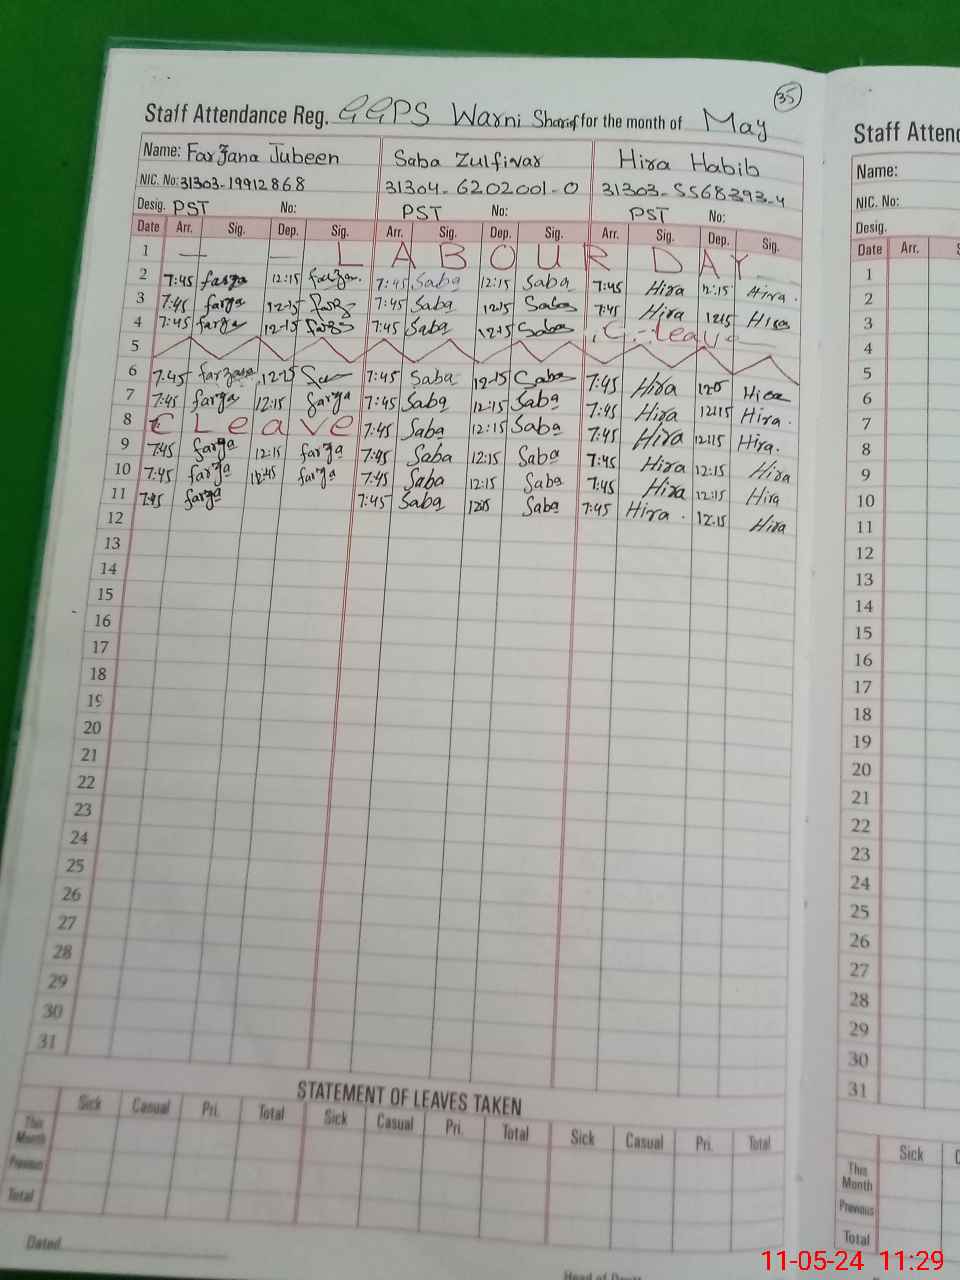 35
Staff Attendance Reg. GGPS Warni Sharif for the month of May
Name: Farzana Jubeen Saba Zulfiqar Hira Habib
NIC. No: 31303-19912868 31304-6202001-0 31303-5568393-4
Desig. PST No: PST No: PST No:
Date Arr. Sig. Dep. Sig. Arr. Sig. Dep. Sig. Arr. Sig. Dep. Sig.
1 — — LABOUR DAY
2 7:45 farza 12:15 farzan 7:45 Saba 12:15 Saba 7:45 Hira 12:15 Hira.
3 7:45 farza 12:15 farz 7:45 Saba 12:15 Saba 7:45 Hira 12:15 Hira
4 7:45 farza 12:15 farz 7:45 Saba 12:15 Saba C. Leave
5
6 7:45 farzana 12:15 7:45 Saba 12:15 Saba 7:45 Hira Hira
7 7:45 farza 12:15 farza 7:45 Saba 12:15 Saba 7:45 Hira 12:15 Hira.
8 C Leave 7:45 Saba 12:15 Saba 7:45 Hira 12:15 Hira.
9 7:45 farza 12:15 farza 7:45 Saba 12:15 Saba 7:45 Hira 12:15 Hira
10 7:45 farza 12:45 farza 7:45 Saba 12:15 Saba 7:45 Hira 12:15 Hira
11 7:45 farza 7:45 Saba 12:15 Saba 7:45 Hira. 12:15 Hira
12
13
14
15
16
17
18
19
20
21
22
23
24
25
26
27
28
29
30
31
STATEMENT OF LEAVES TAKEN
Sick Casual Pri. Total Sick Casual Pri. Total Sick Casual Pri. Total
This Month
Previous
Total
Dated
Staff Atten
Name:
NIC. No:
Desig.
Date Arr. S
1
2
3
4
5
6
7
8
9
10
11
12
13
14
15
16
17
18
19
20
21
22
23
24
25
26
27
28
29
30
31
Sick C
This Month
Previous
Total
11-05-24 11:29